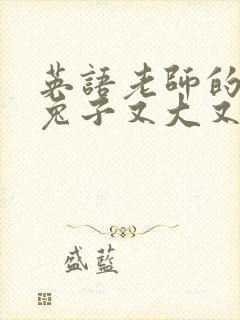 英語老師的
兔子又大又
盛藍